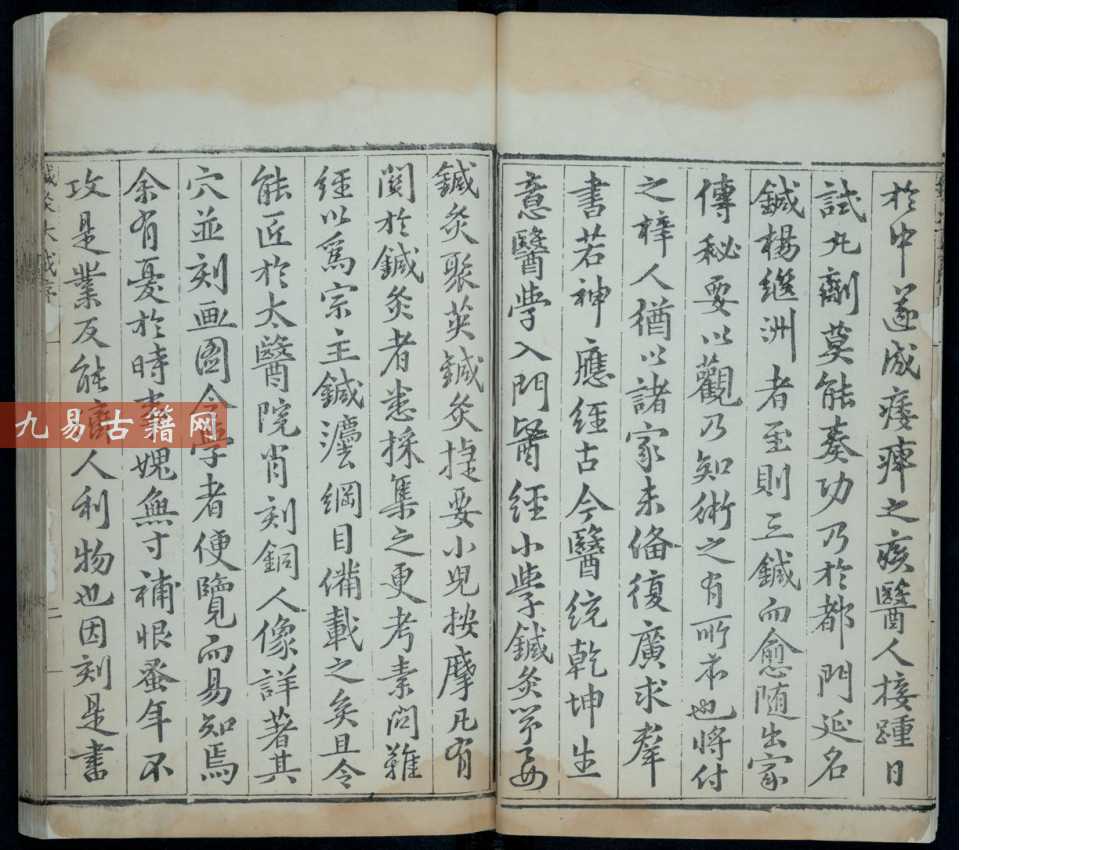 於中遂成痿痺之疾醫人接踵日
試丸劑莫能奏功乃於都門延名
鍼楊繼洲者至則三鍼而愈隨出家
傳秘要以觀乃知術之有所本也將付
之梓人猶以諸家未偹復廣求羣
書若神應經古今醫統乾坤生
意醫學入門醫經小學鍼灸節要
鍼灸聚英鍼灸捷要小兒按摩凡有
關於鍼灸者悉採集之更考素問難
經以為宗主鍼灋綱目備載之矣且令
能匠於太醫院肖刻銅人像詳著其
穴並刻畫圖令學者便覽而易知焉
余有憂於時事媿無寸補恨蚤年不
攻是業反能濟人利物也因刻是書
鍼灸大成序
二
九易古籍网